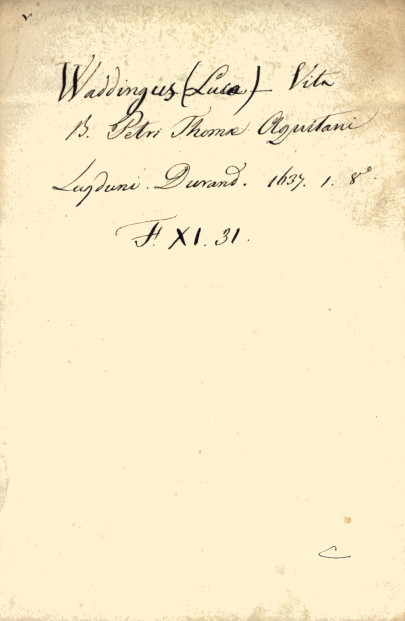 Waddingus (Luca) - Vita
B. Petri Thomæ Aquitani
Lugduni. Durand. 1637. 1. 8º.
F. XI. 31.
C